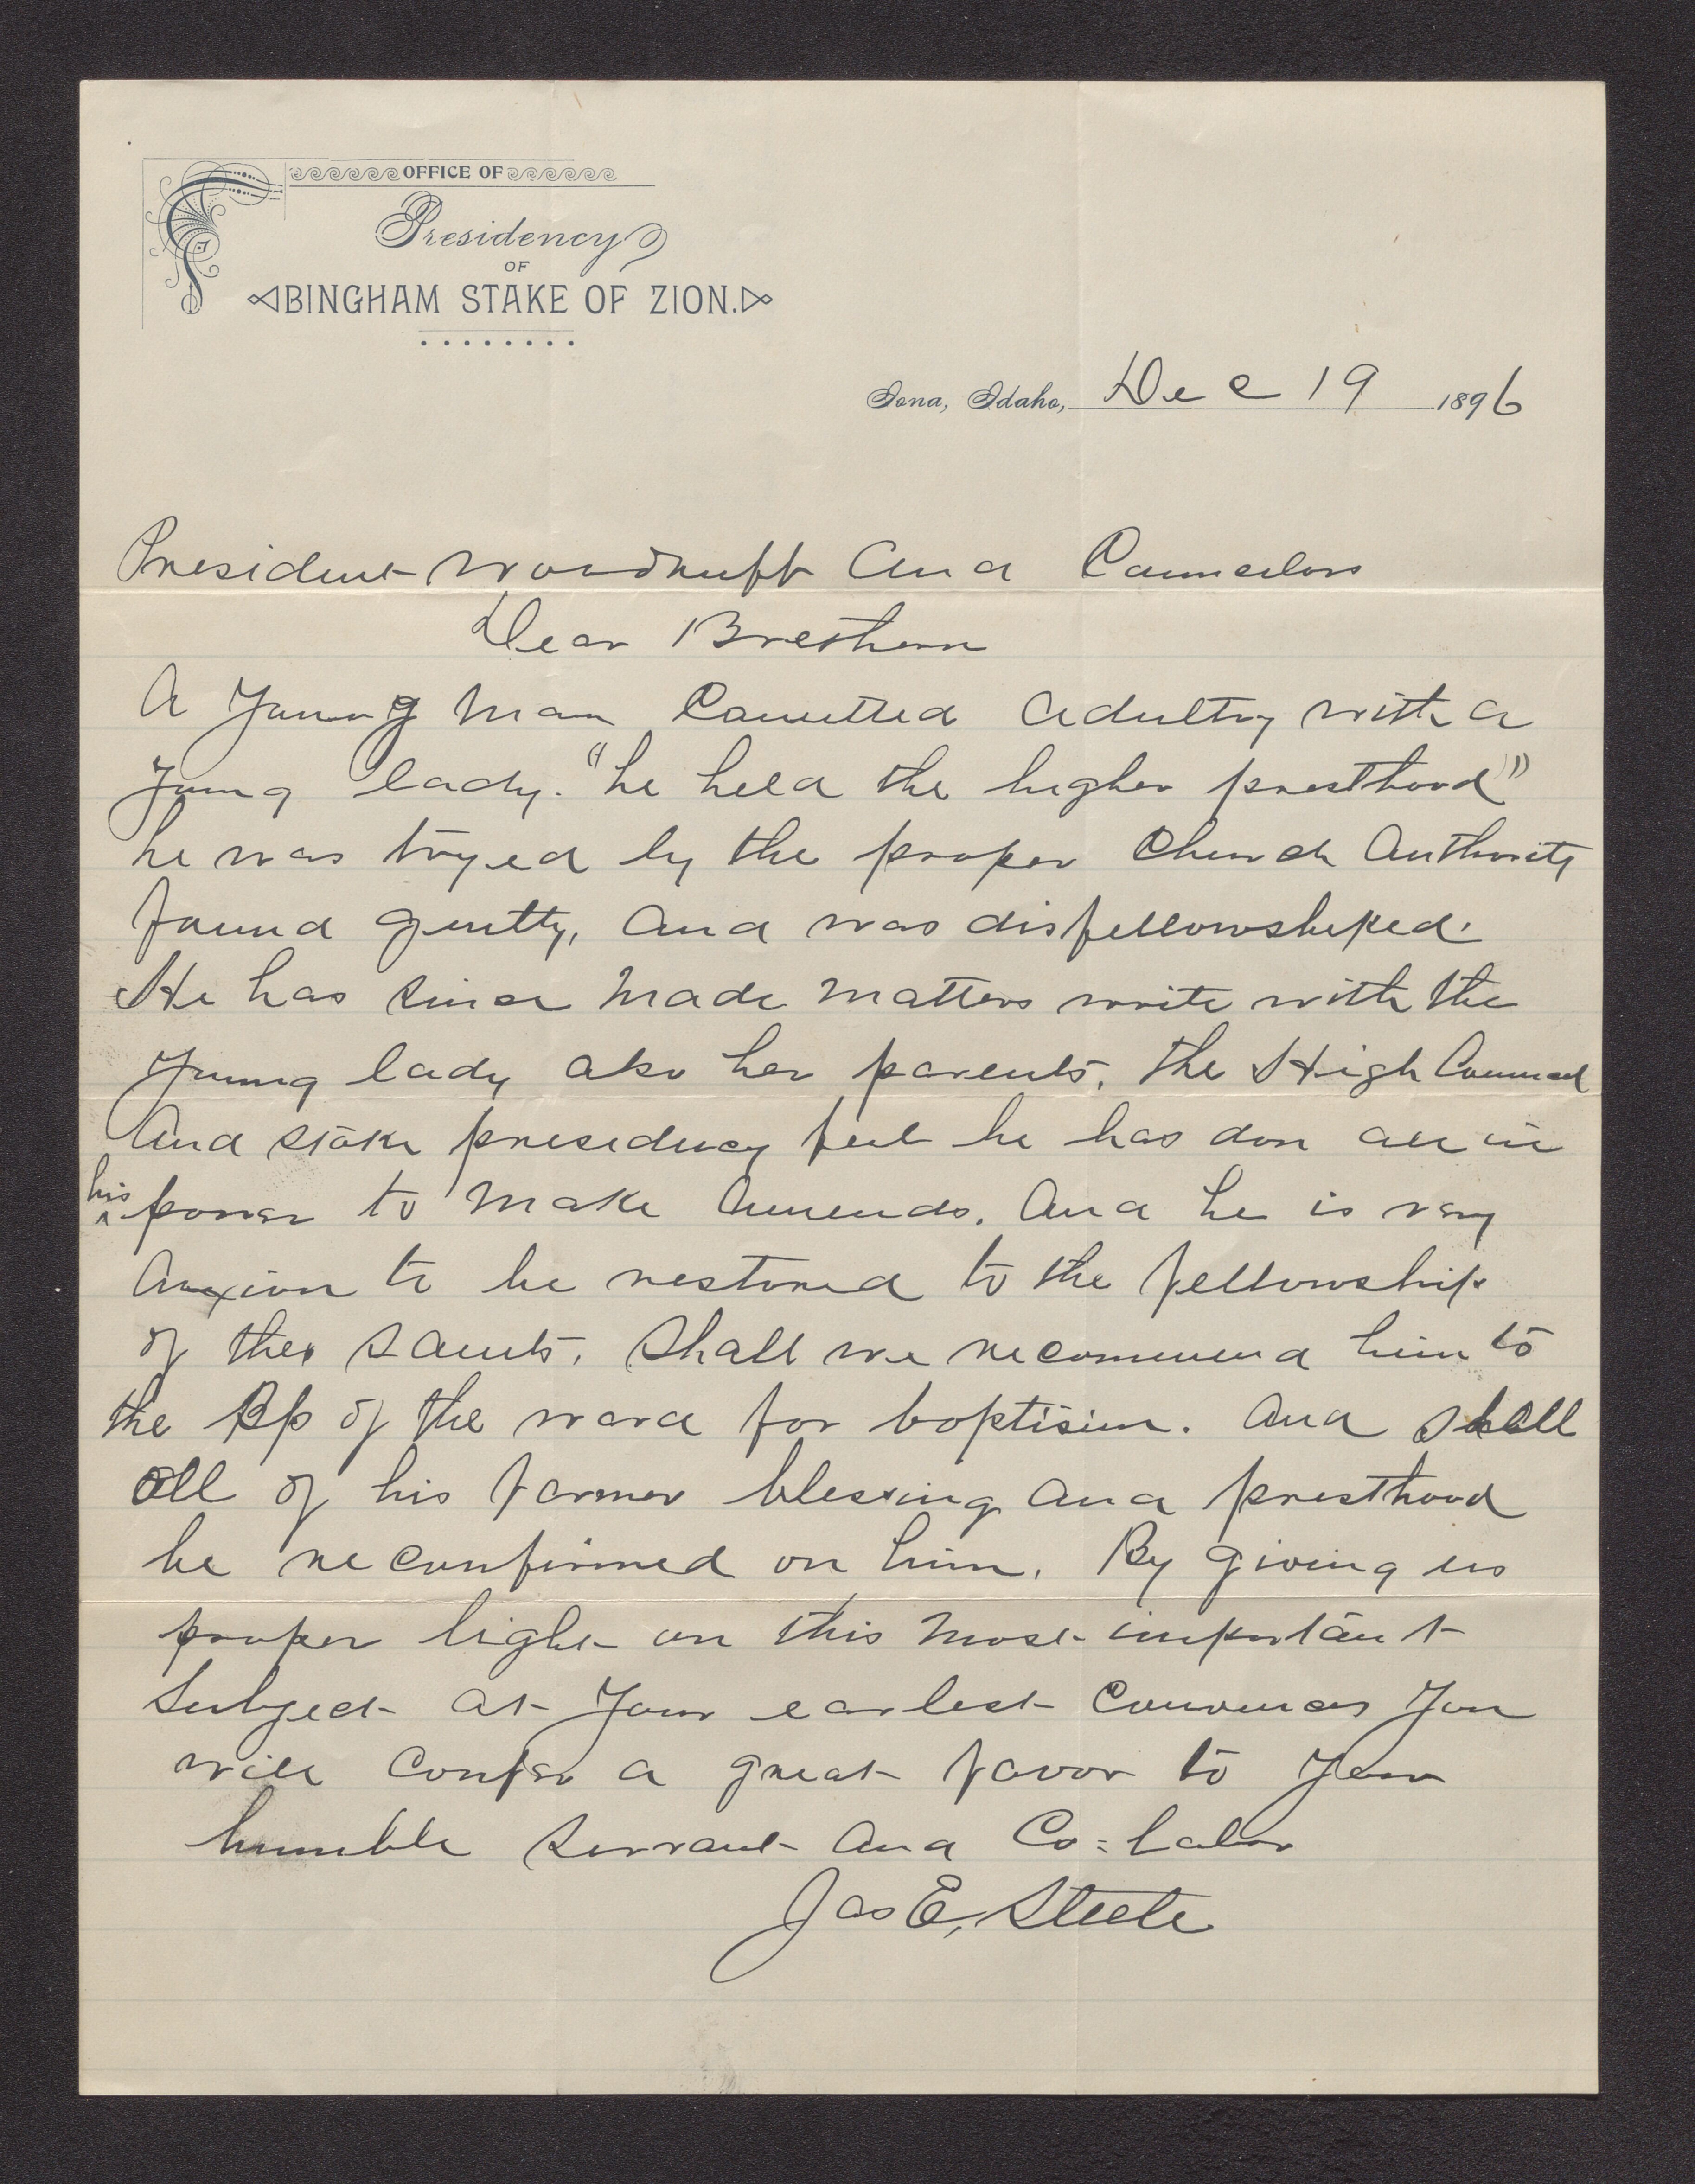 OFFICE OF
Presidency
OF
BINGHAM STAKE OF ZION.
Iona, Idaho, Dec 19 1896
President Woodruff And Councelors
Dear Brethern
A Young Man Comitted adultry with a
young lady. "he held the higher presthood"
he was tryed by the proper Church Authority
found guilty, And was disfellowshiped.
He has since made matters write with the
young lady also her parents, the High Council
And stake presidency feel he has don all in
his power to make Amends. And he is very
Anxious to be restored to the fellowship
of the saints. Shall we recommend him to
the Bp of the ward for boptisim. And shall
all of his former blessing And presthood
be reconfirmed on him. By giving us
proper light on this most important
subject at Your earlest You
will confer a great favor to Your
humble servant And Co=labor
Jas E, Steele